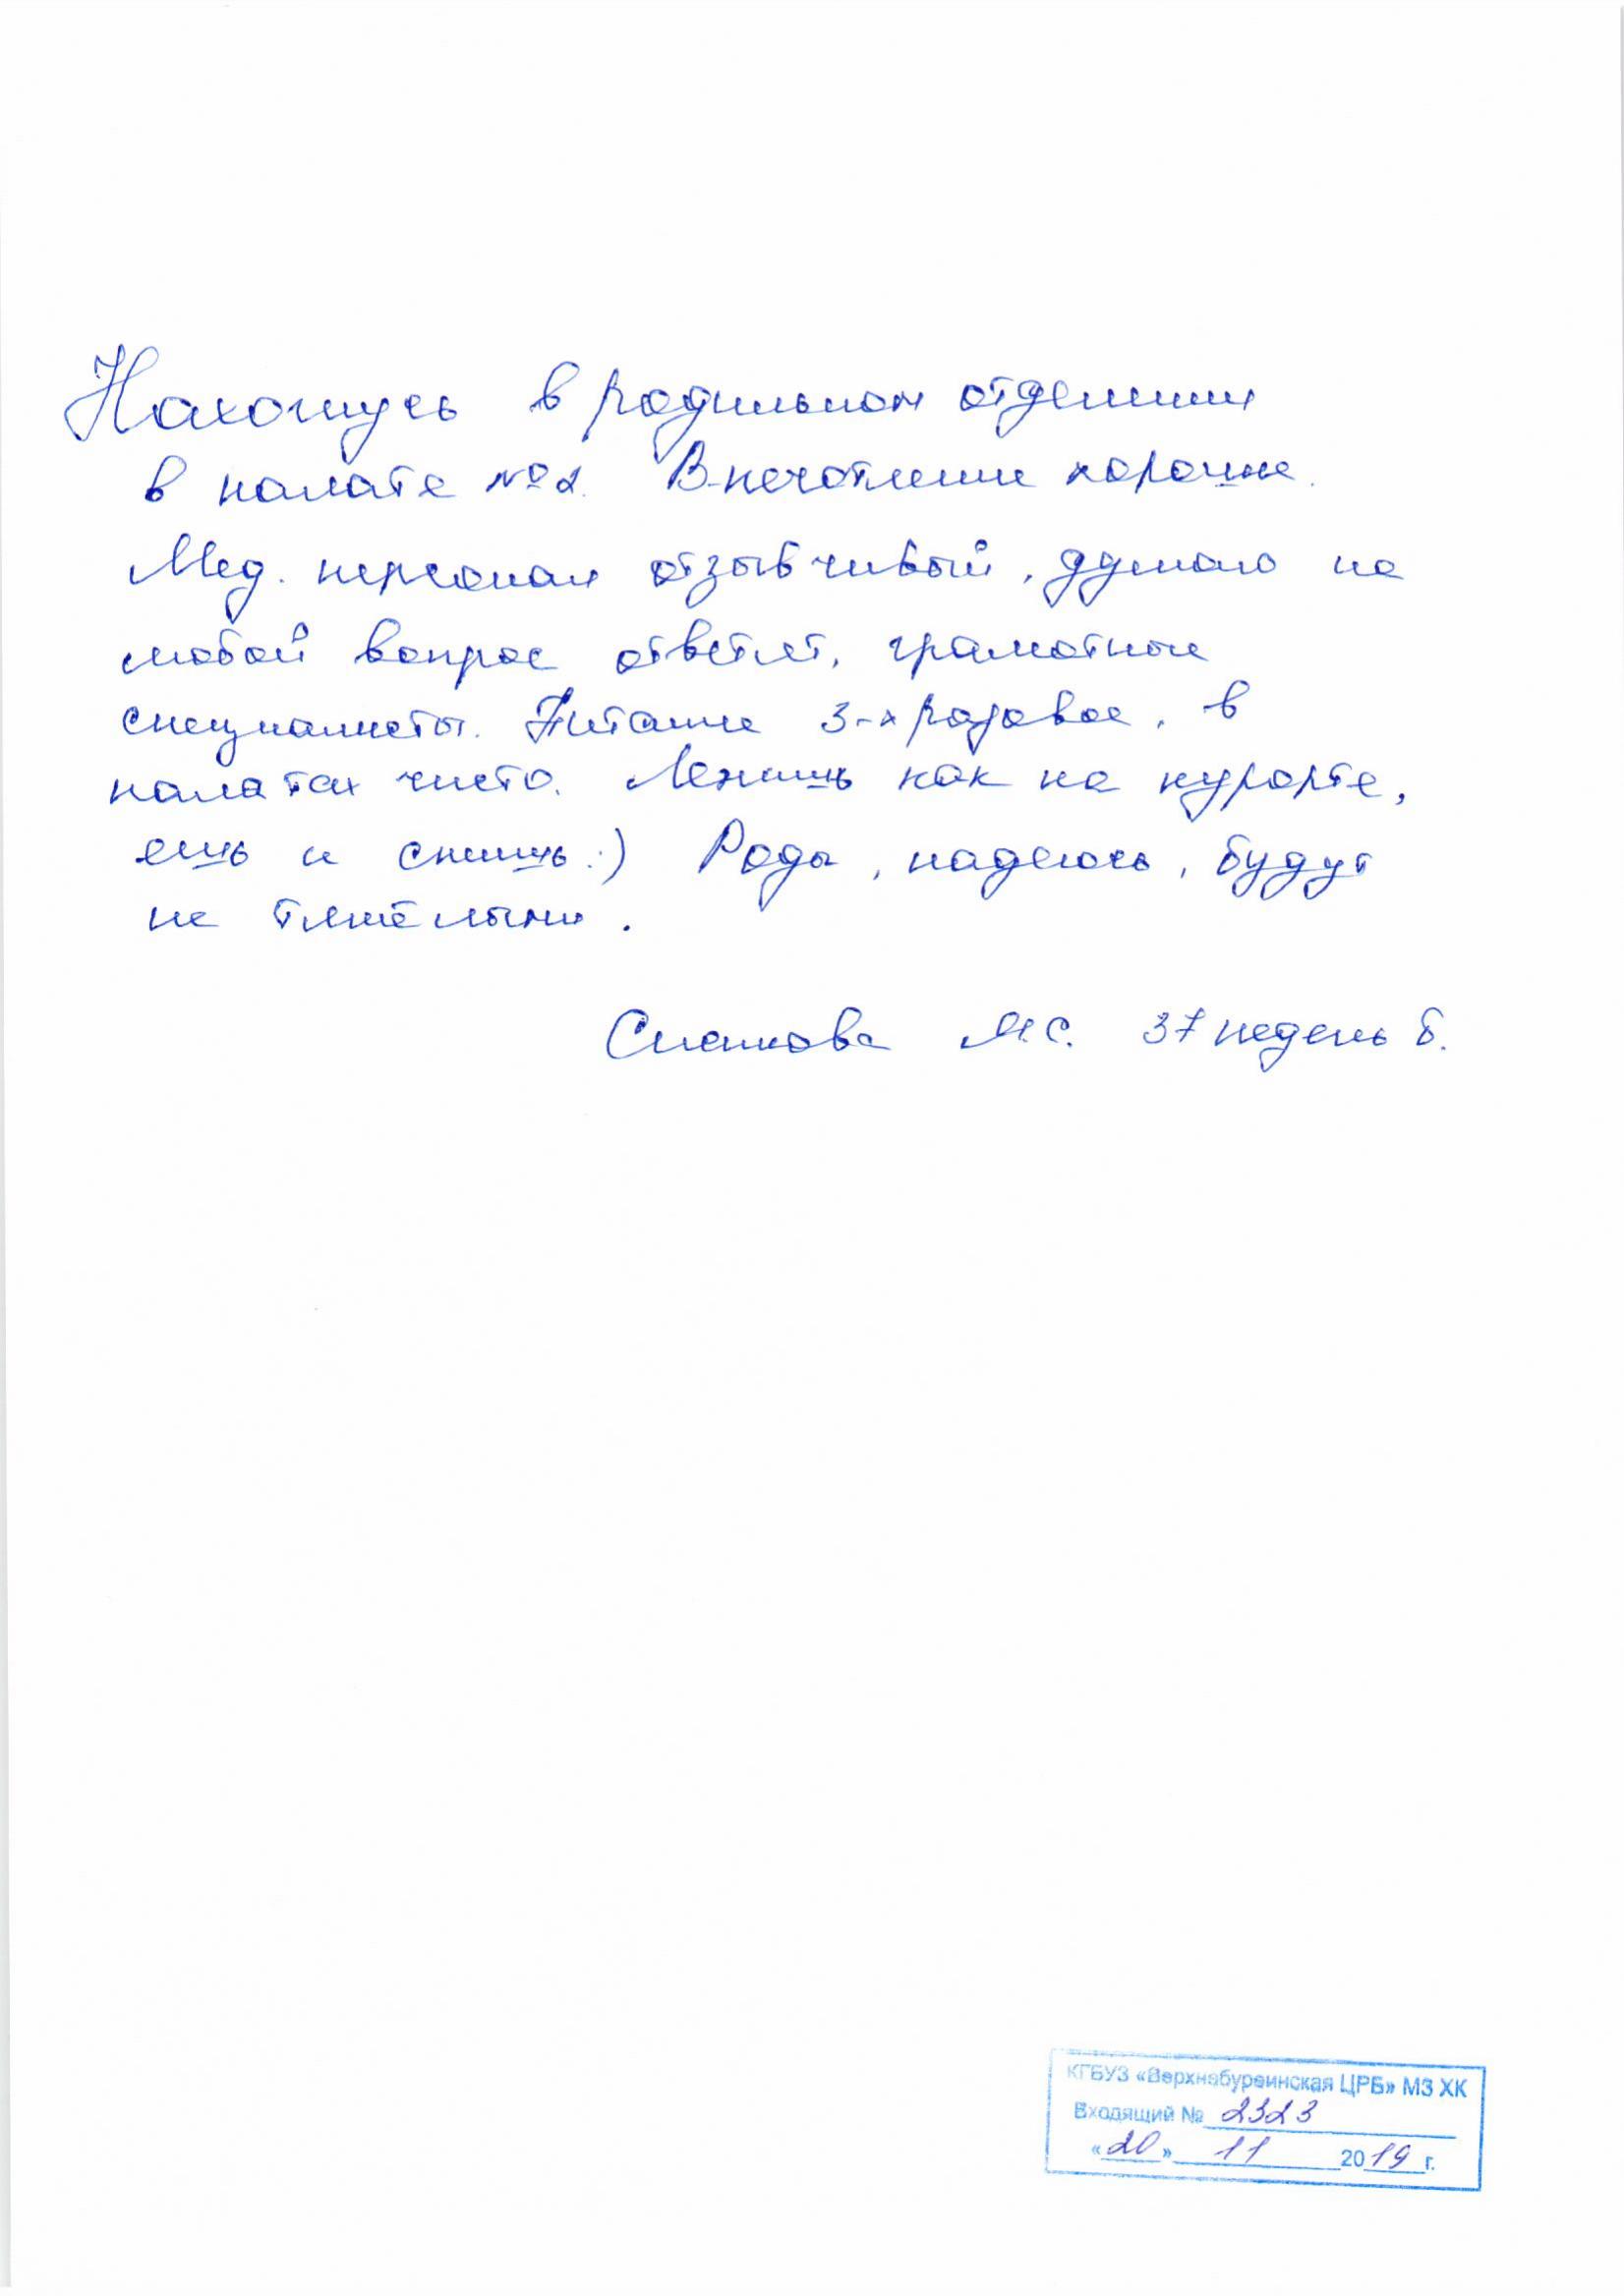 Нахожусь в родильном отделении
в палате №2. Впечатление хорошее.
Мед. персонал отзывчивый, думаю на
любой вопрос ответят, грамотные
специалисты. Питание 3-х разовое, в
палатах чисто. Лежишь как на курорте,
ешь и спишь :) Роды, надеюсь, будут
не тяжёлыми.
М.С. 37 недель б.
КГБУЗ «Верхнебуреинская ЦРБ» МЗ ХК
Входящий № 2323
«20» 11 2019 г.